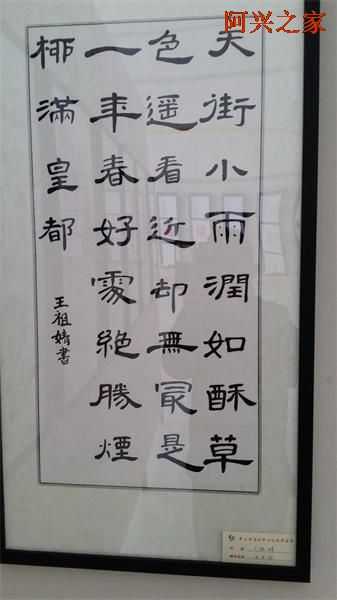 阿兴之家
天街小雨潤如酥草
色遥看近却無冣是
一年春好處絶勝煙
柳滿皇都
王祖婧書